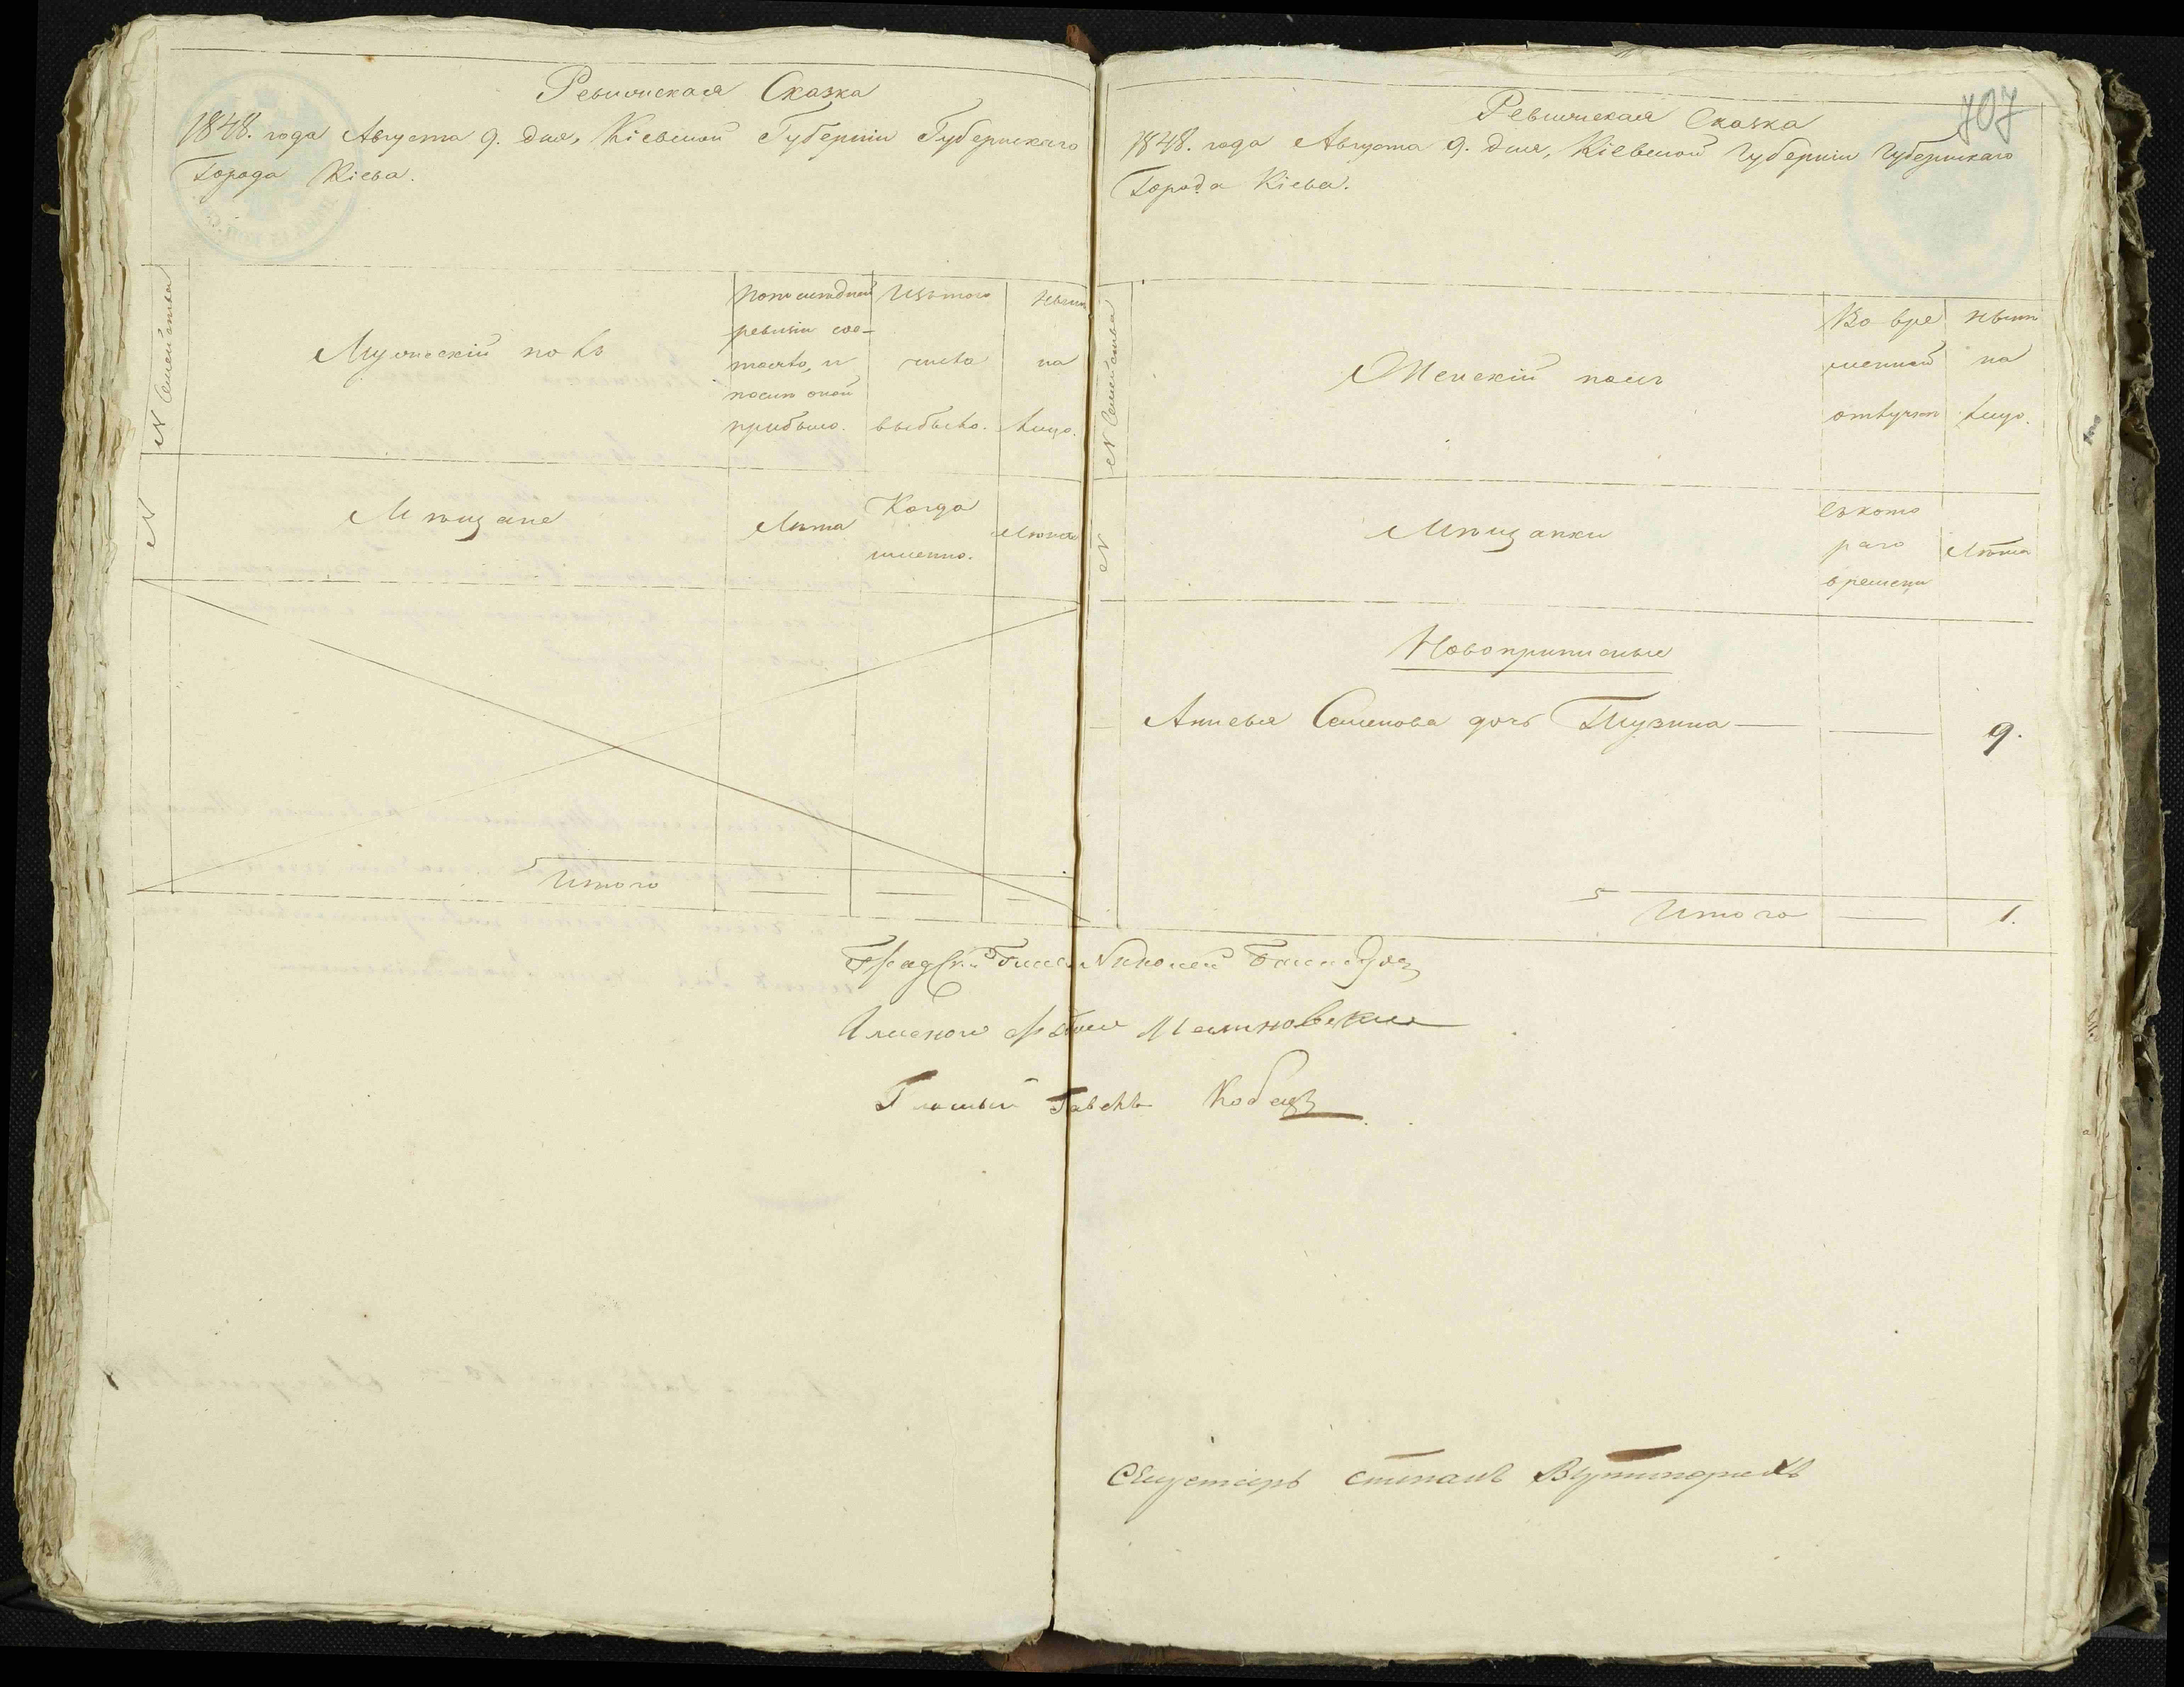 Ревижская Сказка
1848. года Августа 9. дня, Кіевской Губерніи Губернскаго
Города Кіева.
N Семейства
Мужескій полъ
По последней
ревизіи сос-
тояло, и
после оной
прибыло.
Изъ того
числа
выбыло.
Ныне
на
лицо.
N
Мѣщане
Лѣта
Когда
именно.
Лѣта
Итого
707
Ревижская Сказка
1848. года Августа 9. дня, Кіевской Губерніи Губернскаго
Города Кіева.
N Семейства
Женскій полъ
Во вре
менной
отлучке
Ныне
на
лицо.
N
Мѣщанки
Съ кото
раго
времени
Лѣта
Новоприписные
Семенова дочь
9.
Итого
1.
Николай
Гласный Павелъ Кобецъ
Степанъ